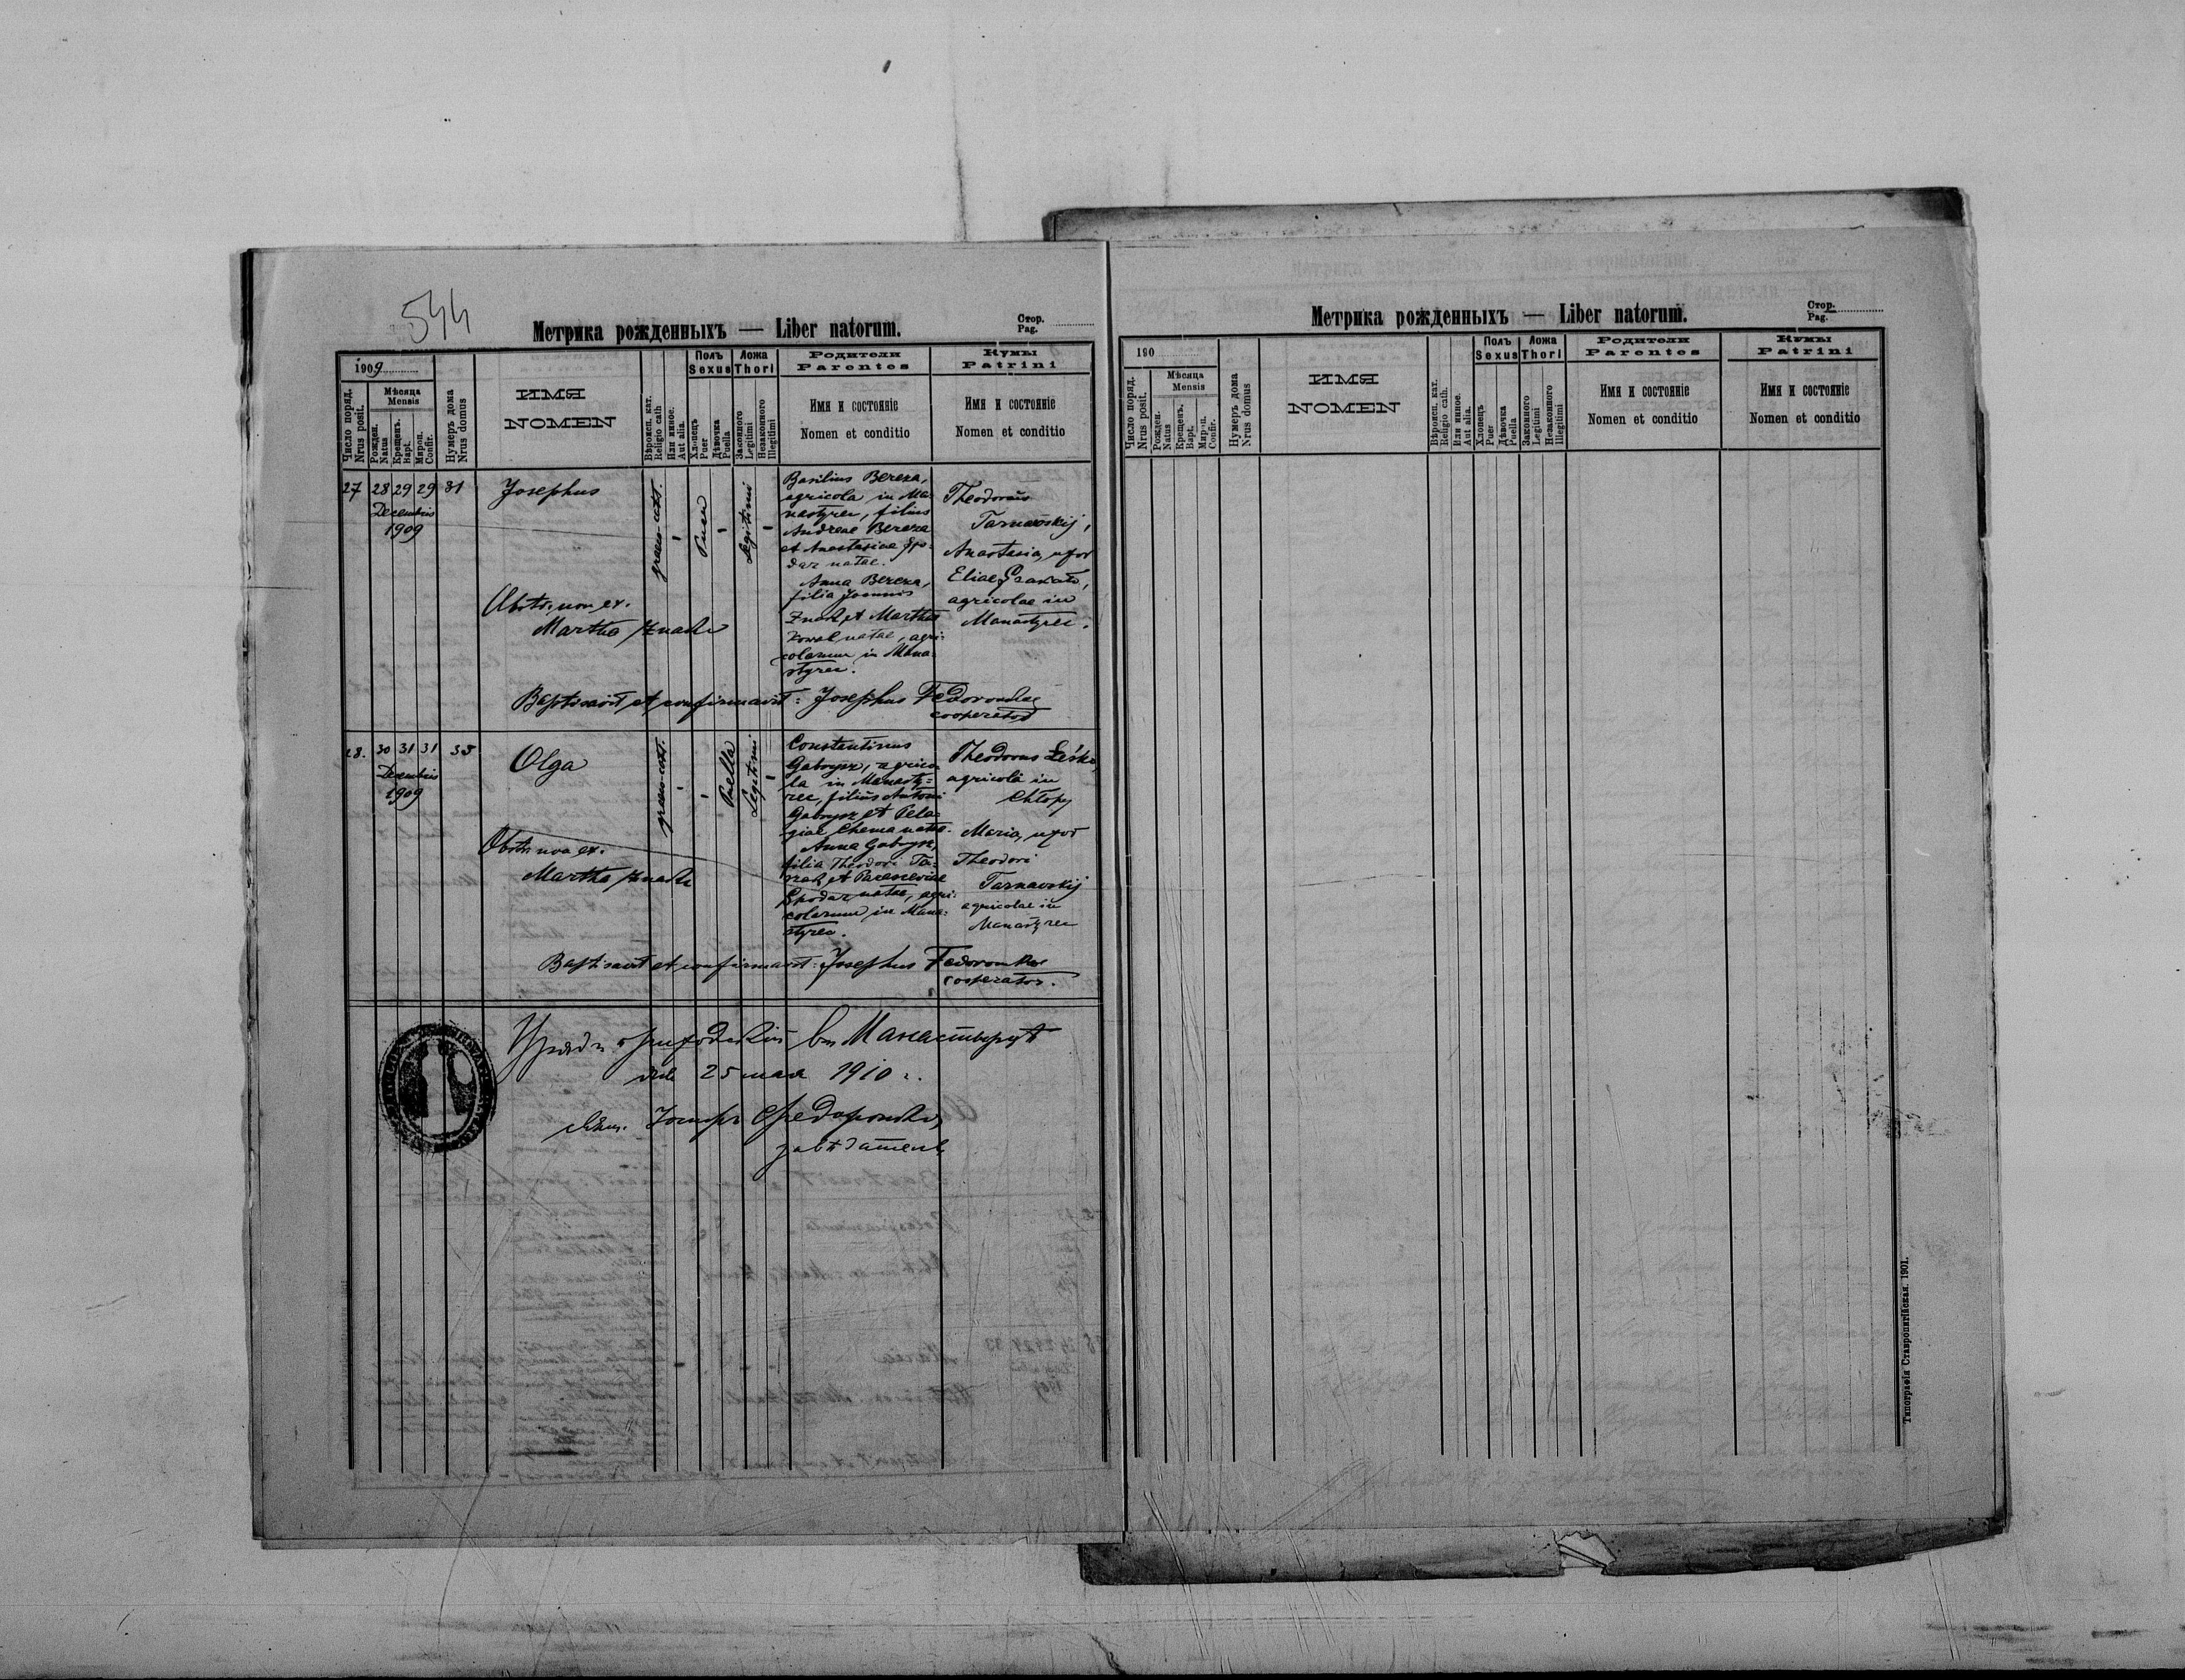 544
Метрика рожденныхъ — Liber natorum.
Стор.
Pag.
1909
Число поряд.
Nrus posit.
Мѣсяца
Mensis
Рожден.
Natus
Крещенъ.
Bapt.
Мѵроп.
Confir.
Нумеръ дома
Nrus domus
ИМЯ
NOMEN
Вѣроисп. кат.
Religio cath
Или иное.
Aut alia.
Полъ
Sexus
Хлопецъ
Puer
Дѣвочка
Puella
Ложа
Thori
Законного
Legitimi
Незаконного
Illegitimi
Родители
Parentes
Имя и состояніе
Nomen et conditio
Кумы
Patrini
Имя и состояніе
Nomen et conditio
27 28 29 29 31
Decembris
1909
Josephus
graeco-cat.
-
Puer
-
Legitimi
-
Basilius Bereza,
agricola in Ma-
nastyrec, filius
Andreae Bereza
et Anastasiae
natae.
Anna Bereza,
filia Joannis
et Martha
Kowal natae, agri-
colarum in Mana-
styrec.
Theodorus
Tarnawskij,
Anastasia, uxor
Eliae
agricolae in
Manastyrec.
Obstr. non ex.
Martha
Baptisavit et confirmavit: Josephus Fedoronko
cooperator
28. 30 31 31 35
Decembris
1909
Olga
graeco-cat.
-
-
Puella
Legitimi
-
Constantinus
Gabrysz, agrico-
la in Manasty-
rec, filius Antonii
Gabrysz et Pela-
giae Chema natae.
Anna Gabrysz,
filia Theodori
et Parasceviae
natae, agri-
colarum in Mana-
styrec.
Theodorus Leśko,
agricola in
Chłopy
Maria, uxor
Theodori
Tarnavskij
agricolae in
Manastyrec
Obstr. non ex.
Martha
Baptisavit et confirmavit: Josephus Fedoronko
cooperator.
Урядъ приходскій въ Манастырци
дня 25 мая 1910 г.
свящ. Іосифъ Федоронко
завѣдатель
Метрика рожденныхъ — Liber natorum.
Стор.
Pag.
190
Число поряд.
Nrus posit.
Мѣсяца
Mensis
Рожден.
Natus
Крещенъ.
Bapt.
Мѵроп.
Confir.
Нумеръ дома
Nrus domus
ИМЯ
NOMEN
Вѣроисп. кат.
Religio cath.
Или иное.
Aut alia.
Полъ
Sexus
Хлопецъ
Puer
Дѣвочка
Puella
Ложа
Thori
Законного
Legitimi
Незаконного
Illegitimi
Родители
Parentes
Имя и состояніе
Nomen et conditio
Кумы
Patrini
Имя и состояніе
Nomen et conditio
Типографія Ставропигійская. 1901.